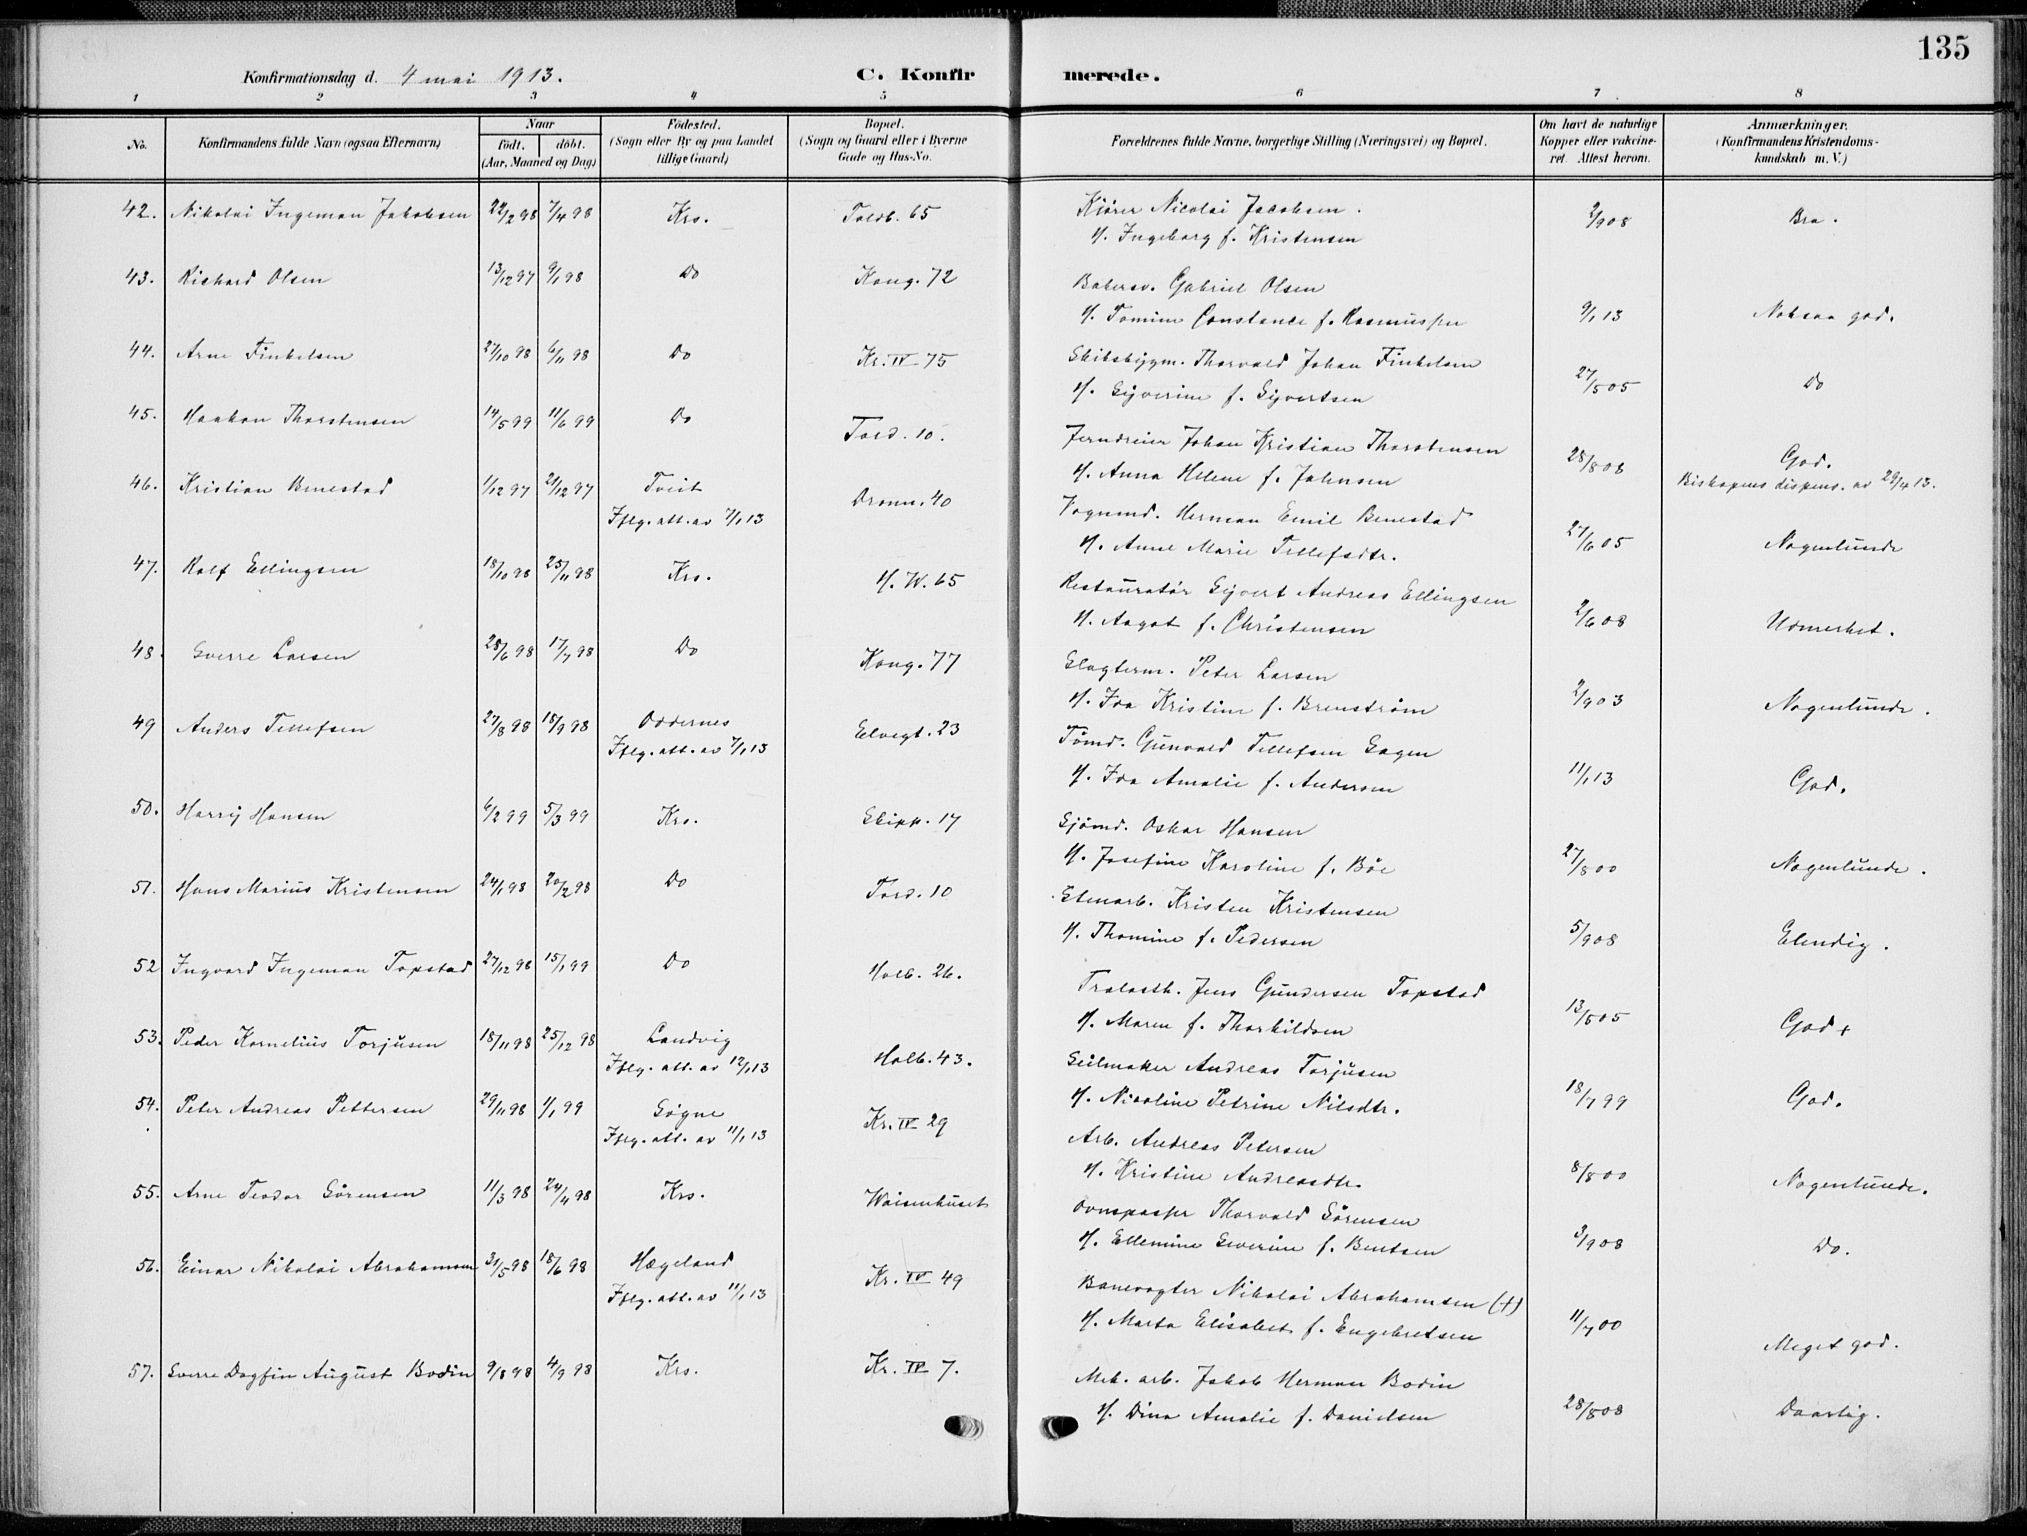 135
Konfirmationsdag d. 4 mai 1913. C. Konfirmerede.
1 2 3 4 5 6 7 8
No. Konfirmandens fulde Navn (ogsaa Efternavn) Naar født. døbt. (Aar, Maaned og Dag) Fødested. (Sogn eller By og paa Landet tillige Gaard) Bopæl. (Sogn og Gaard eller i Byerne Gade og Hus-No. Forældrenes fulde Navne, borgerlige Stilling (Næringsvei) og Bopæl. Om havt de naturlige Kopper eller vakcineret. Attest herom. Anmærkninger. (Konfirmandens Kristendomskundskab m. V.)
42. Nikolai Ingeman Jakobsen 22/2 98 7/4 98 Krs. Toldb. 65 Kjører Nicolai Jacobsen. 2/9 08 Bra.
H. Ingeborg f. Kristensen
43. Richard Olsen 13/12 97 9/1 98 Do Kong. 72 Bakersv. Gabriel Olsen
H. Tomine Constance f. Rasmussen 9/1 13 Noksaa god.
44. Arne Finkelsen 27/10 98 6/11 98 Do Kr. IV 75 Skibsbygm. Thorvald Johan Finkelsen
H. Syverine f. Syvertsen 27/5 05 Do
45. Haakon Thorstensen 14/5 99 11/6 99 Do Tord. 10. Jerndreier Johan Kristian Thorstensen
H. Anna Helene f. Johnsen 28/8 08 God.
Biskopens dispens. av 29/4 13.
46. Kristian Benestad 1/12 97 21/12 97 Tveit Dronn. 40 Vognmd. Herman Emil Benestad
Iflg. att. av 7/1 13 H. Anne Marie Tellefsdtr. 27/6 05 Nogenlunde
47. Rolf Ellingsen 18/10 98 25/11 98 Krs. H. W. 65 Restauratør Syvert Andreas Ellingsen
H. Aagot f. Christensen 2/6 08 Udmerket.
48. Sverre Larsen 28/6 98 17/7 98 Do Kong. 77 Slagterm. Peter Larsen
H. Ida Kristine f. Brenstrøm 2/9 03 Nogenlunde.
49 Anders Tellefsen 27/8 98 18/9 98 Oddernes Elvegt. 23 Tømd. Gunvald Tellefsen Sagen
Iflg. att. av 7/1 13 H. Ida Amalie f. Andersen 11/1 13 God.
50. Harry Hansen 6/2 99 5/3 99 Krs. Skipp. 17 Sjømd. Oskar Hansen
H. Josefine Karoline f. Bøe 27/8 00 Nogenlunde.
51. Hans Marius Kristensen 24/1 98 20/2 98 Do Tord. 10 Stenarb. Kristen Kristensen
H. Thomine f. Pedersen 5/9 08 Elendig.
52 Ingvard Ingeman Topstad 27/12 98 15/1 99 Do Holb. 26. Tralasth. Jens Gundersen Topstad
H. Maren f. Thorkildsen 13/5 05 God+
53. Peder Kornelius Torjusen 18/11 98 25/12 98 Landvig Holb. 43. Seilmaker Andreas Torjusen
Iflg. att. av 12/1 13 H. Nicoline Petrine Nilsdtr. 18/7 99 God.
54. Peter Andreas Pettersen 29/11 98 1/1 99 Søgne Kr. IV 29 Arb. Andreas Petersen
Iflg. att. av 11/1 13 H. Kristine Andreasdtr. 8/8 00 Nogenlunde.
55. Arne Teodor Sørensen 11/3 98 24/4 98 Krs. Waisenhuset Ovnspasser Thorvald Sørensen
H. Ellemine Severine f. Bentsen 3/9 08 Do.
56. Einar Nikolai Abrahamsen 31/5 98 18/6 98 Hægeland Kr. IV 49 Banevogter Nikolai Abrahamsen (+)
Iflg. att. av 11/1 13 H. Marta Elisabet f. Engebretsen 11/7 00 Meget god.
57. Sverre Dagfin August Bodin 9/8 98 4/9 98 Krs. Kr. IV 7. Mek. arb. Jakob Herman Bodin
H. Dina Amalie f. Danielsen 28/8 08 Daarlig.